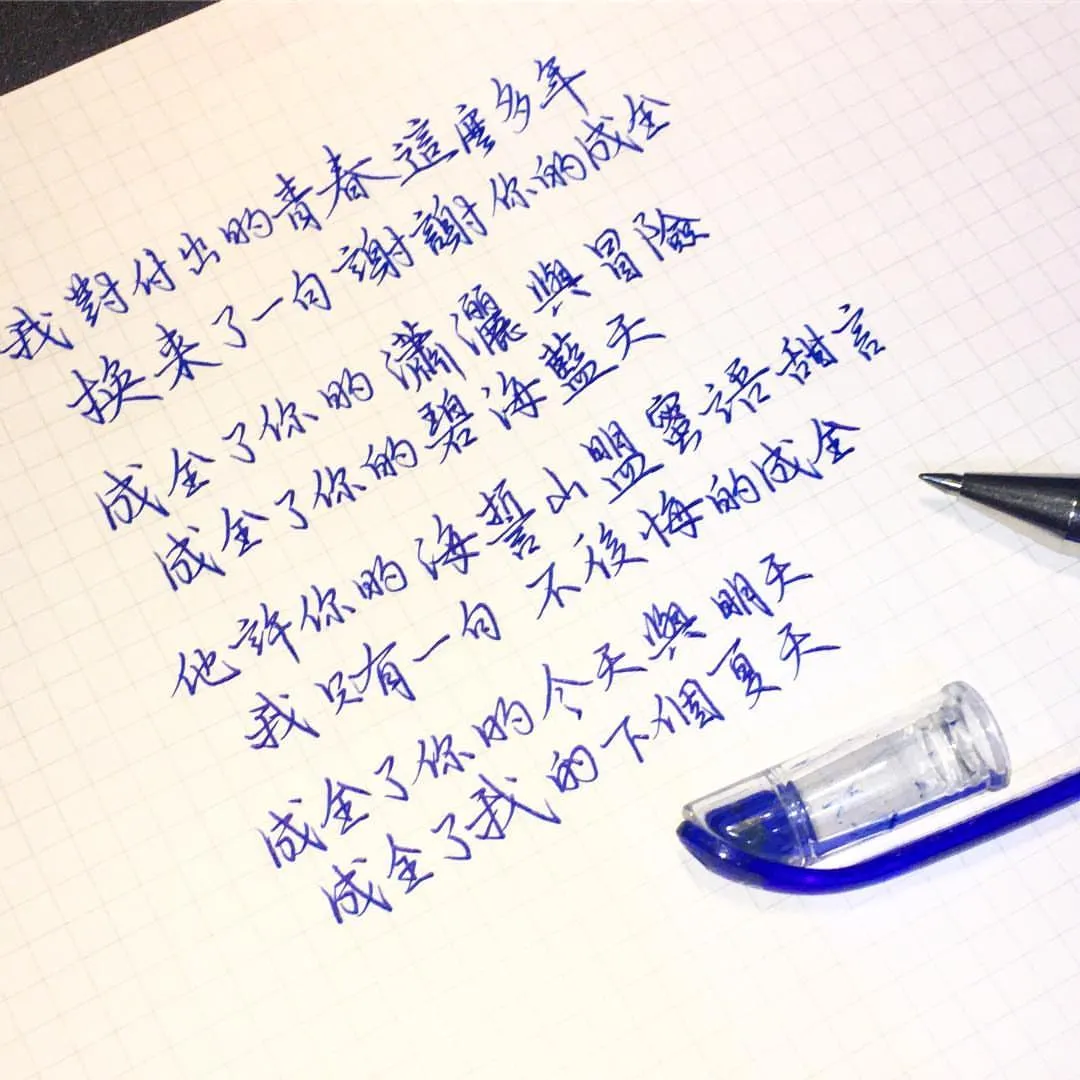 我對付出的青春這麼多年
換来了一句謝謝你的成全
成全了你的瀟灑與冒險
成全了你的碧海藍天
他許你的海誓山盟蜜語甜言
我只有一句不後悔的成全
成全了你的今天與明天
成全了我的下個夏天